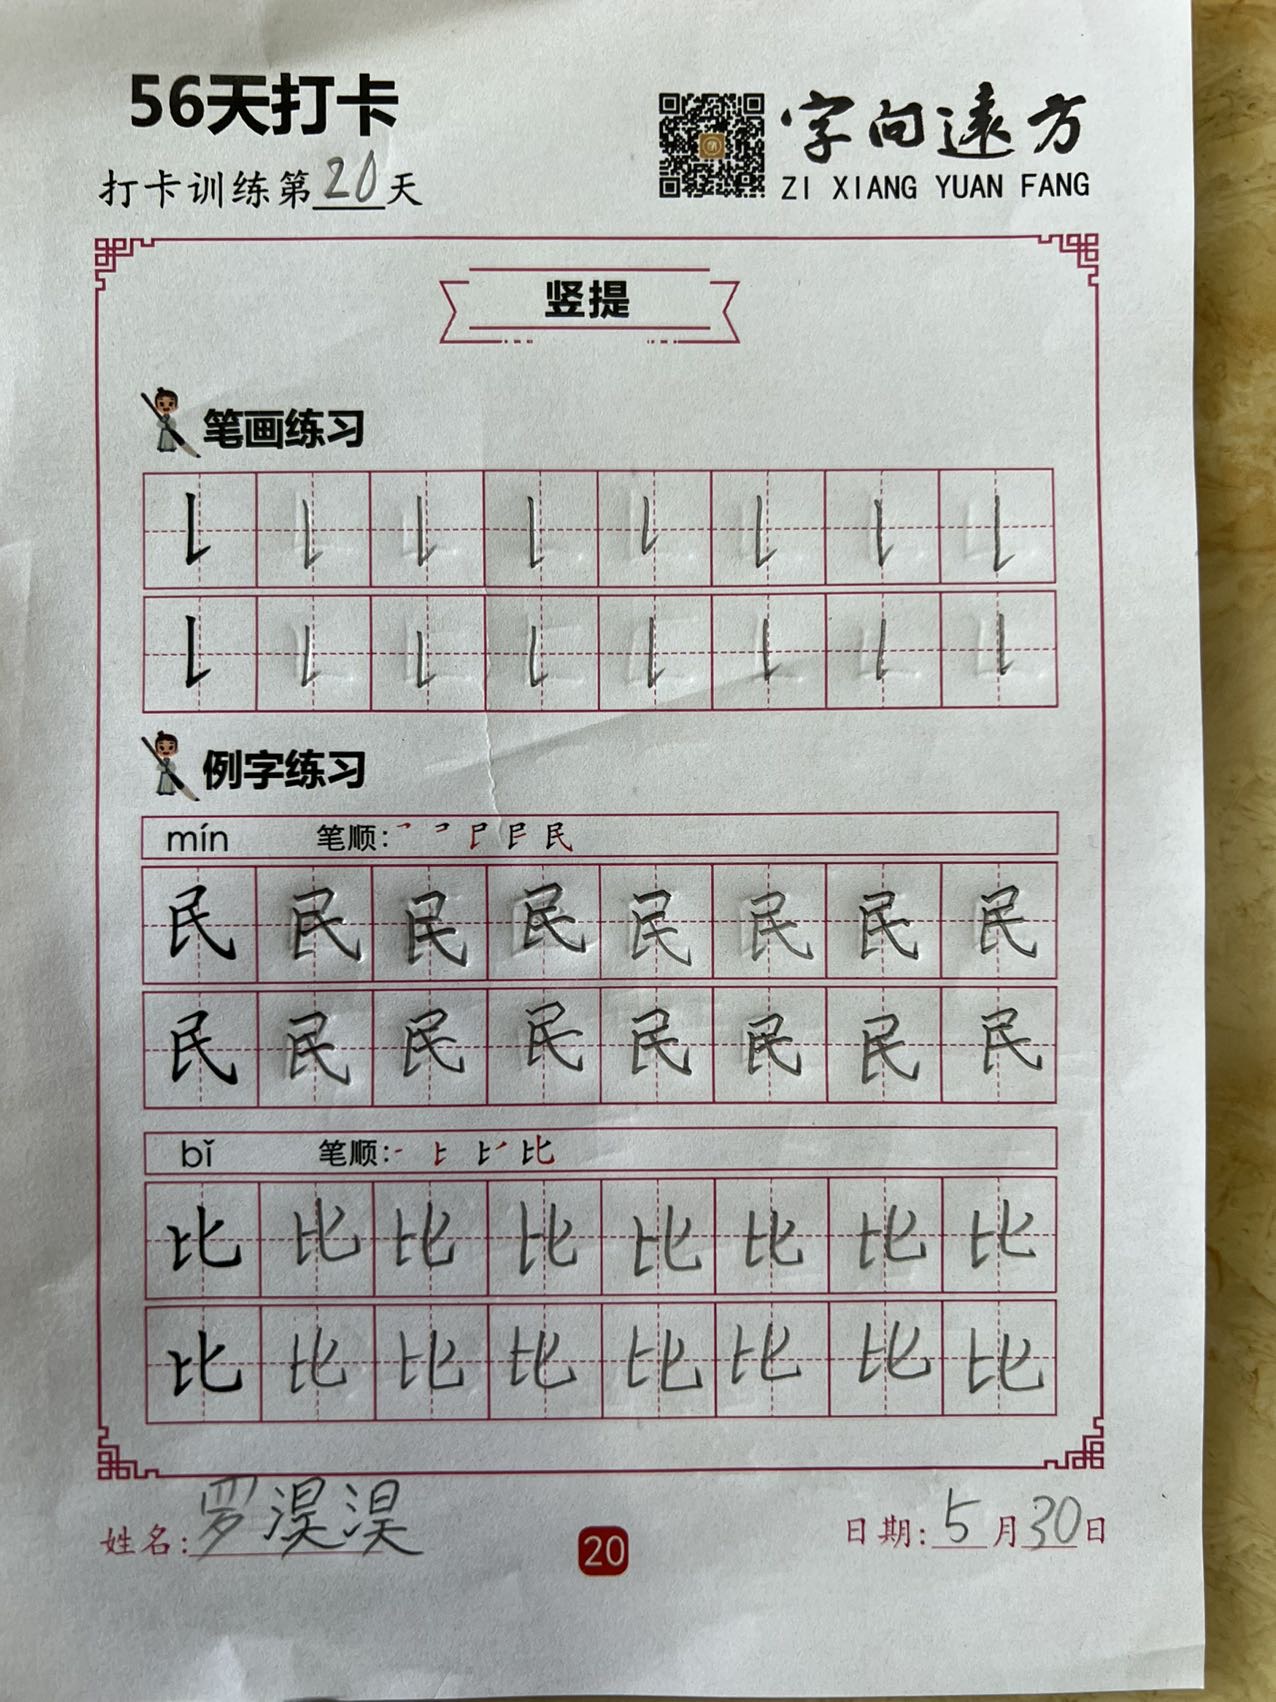 56天打卡
打卡训练第20天
字向远方
ZI XIANG YUAN FANG
竖提
笔画练习
例字练习
mín 笔顺:
民 民 民 民 民 民 民 民
民 民 民 民 民 民 民 民
bǐ 笔顺:
比 比 比 比 比 比 比 比
比 比 比 比 比 比 比 比
姓名:罗淏淏
20
日期:5月30日